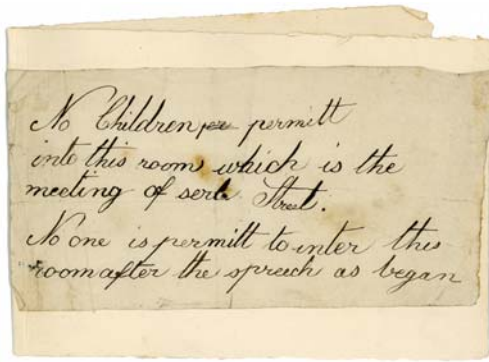 No Children permitt
into this room which is the
meeting of Street.
No one is permitt to inter this
room after the spreech as began